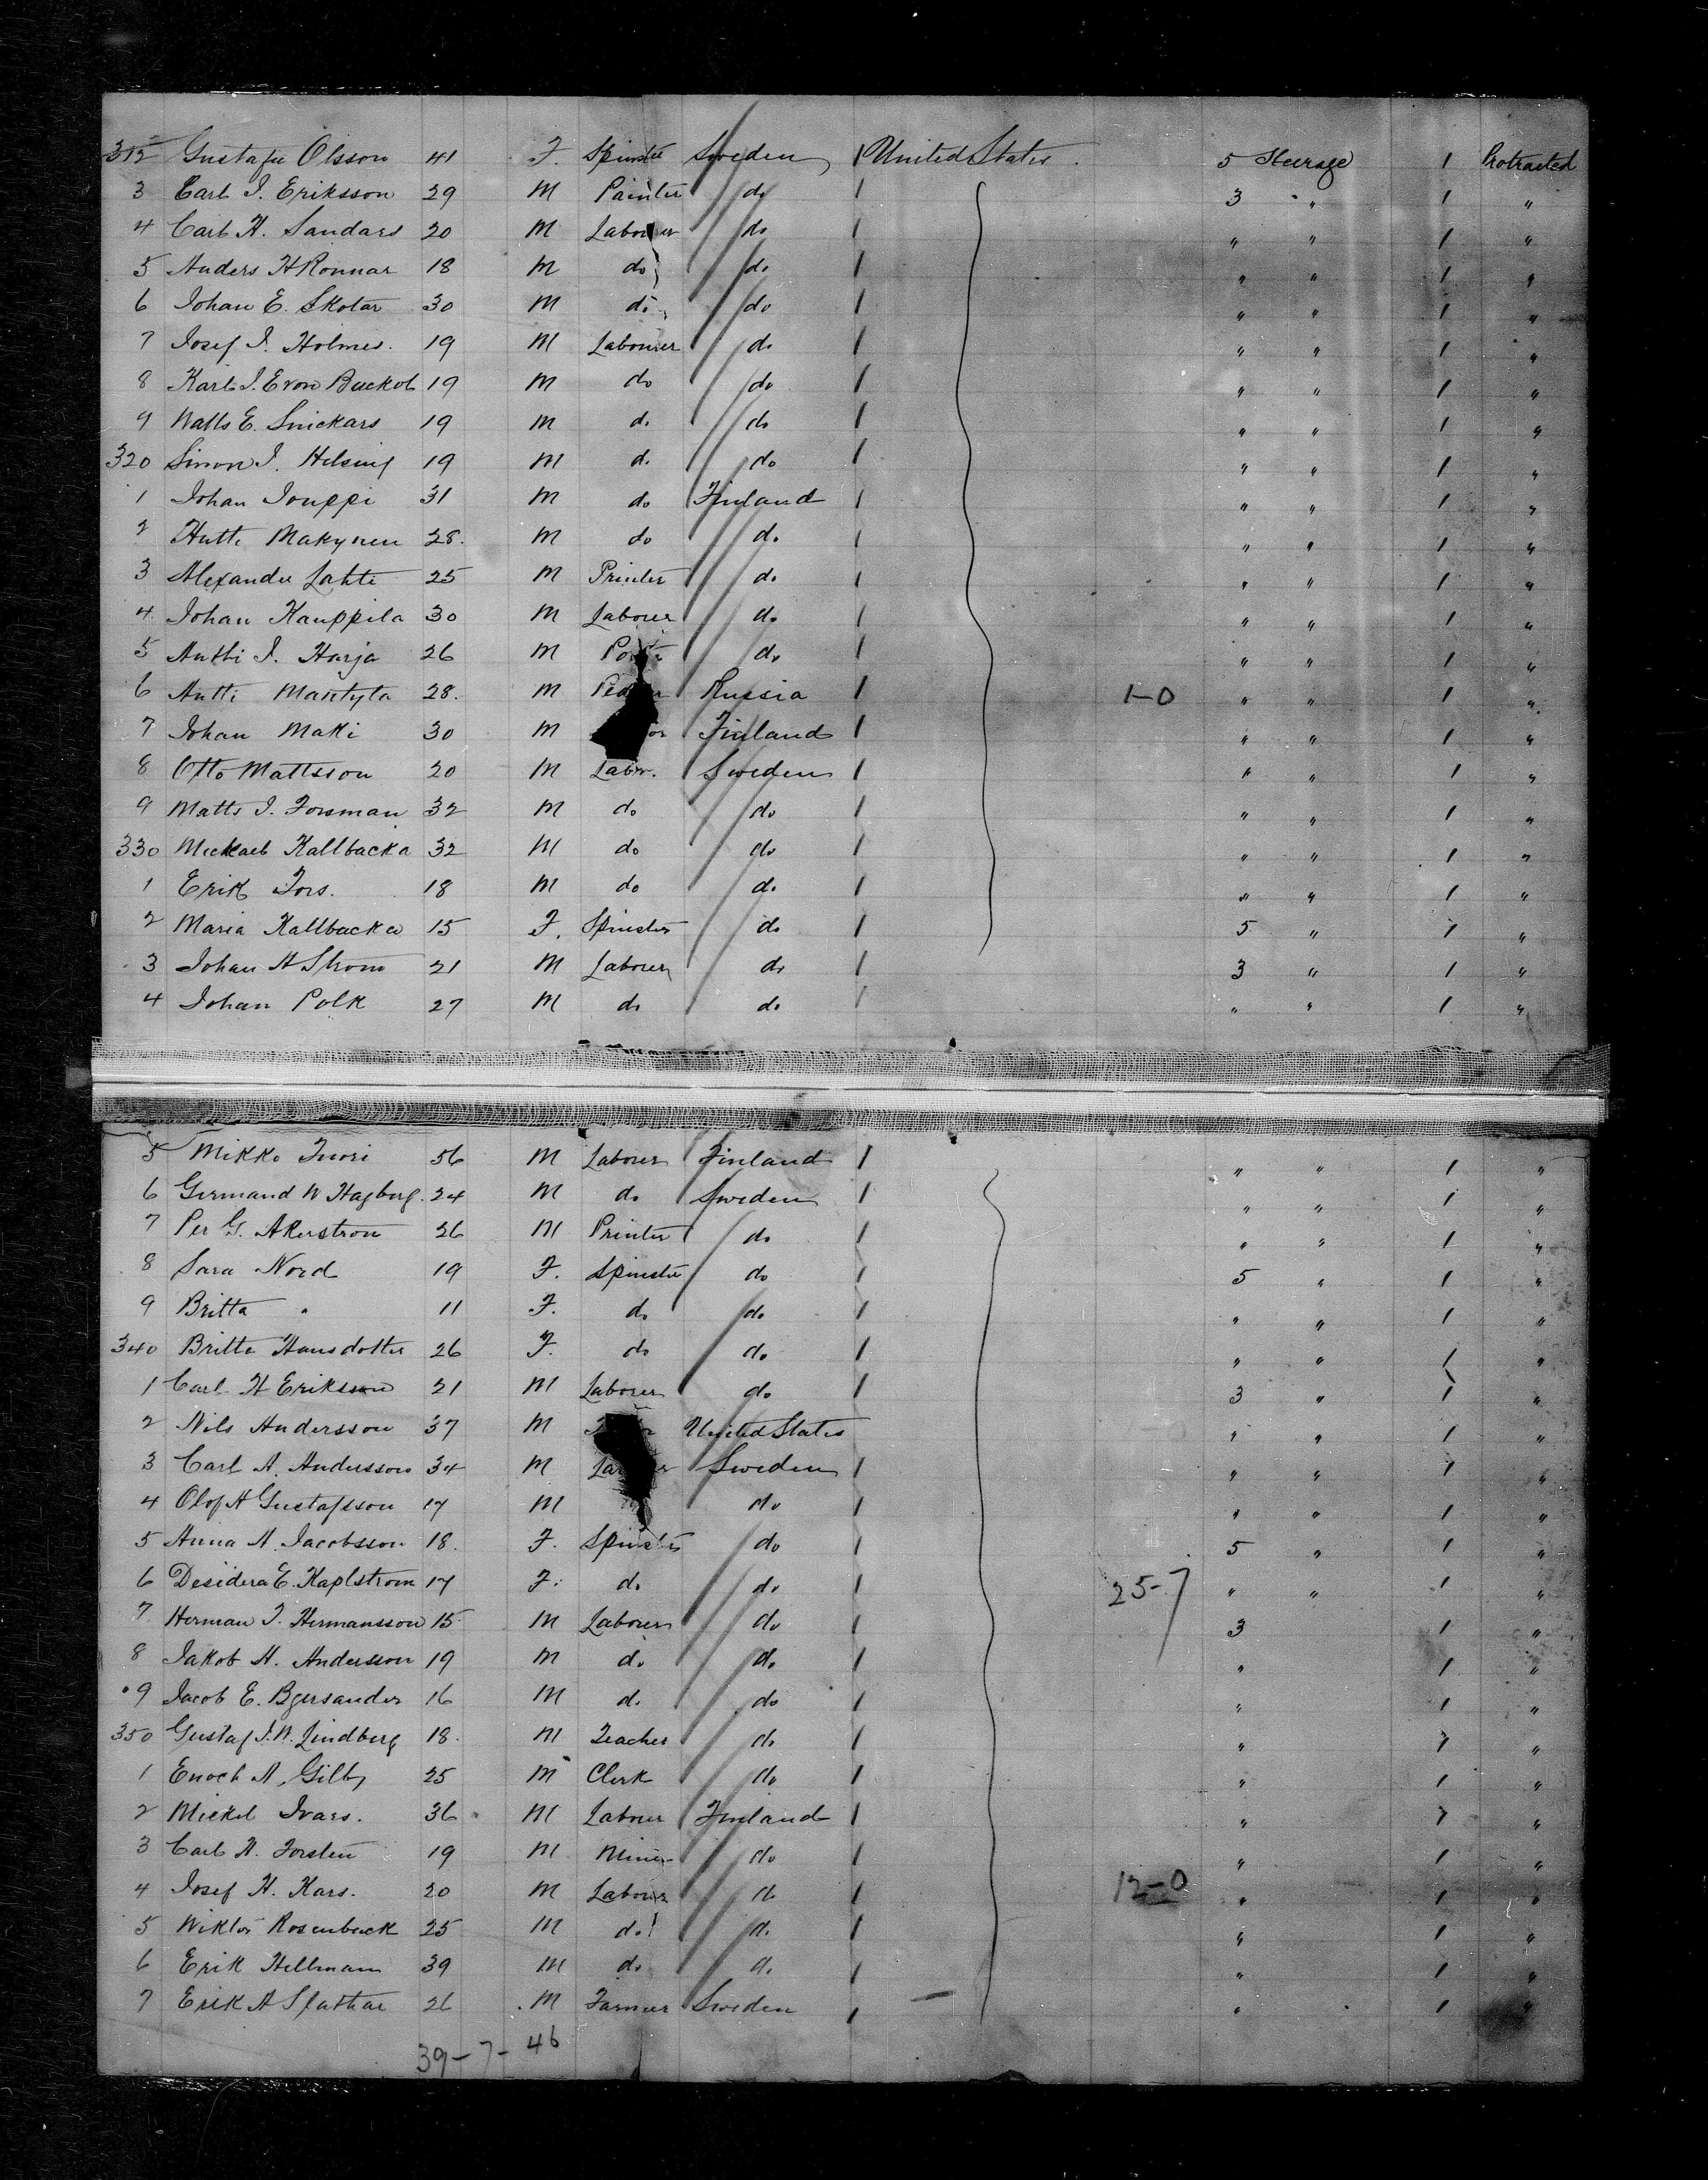 312 Gustafu Olsson 41 F. Spinster Sweden / United States. 5 Steerage 1 Protracted
3 Carl I. Eriksson 29 M Painter do / 3 " 1 "
4 Carl H. Sandars 20 M Laborer do / " " 1 "
5 Anders H Ronnar 18 M do do / " " 1 "
6 Johan E. Skotar 30 M do do / " " 1 "
7 Josef I. Holmes. 19 M Labourer do / " " 1 "
8 Karl I. Evon Backob 19 M do do / " " 1 "
9 Matts E. Snickars 19 M do do / " " 1 "
320 Simon I. Helsing 19 M do do / " " 1 "
1 Johan Jouppi 31 M do Finland / " " 1 "
2 Hutti Makynen 28. M do do / " " 1 "
3 Alexander Lahti 25 M Printer do / " " 1 "
4 Johan Kauppila 30 M Laborer do / " " 1 "
5 Antti I. Harja 26 M do / " " 1 "
6 Antti Mantyla 28. M Russia / 1-0 " " 1 "
7 Johan Maki 30 M Finland / " " 1 "
8 Otto Mattsson 20 M Labor. Sweden / " " 1 "
9 Matts I. Forsman 32 M do do / " " 1 "
330 Mickael Kallbacka 32 M do do / " " 1 "
1 Erik Fors. 18 M do do / " " 1 "
2 Maria Kallbacka 15 F. Spinster do / 5 " 1 "
3 Johan A Strom 21 M Laborer do / 3 " 1 "
4 Johan Polk 27 M do do / " " 1 "
5 Mikko Tuori 56 M Laborer Finland / " " 1 "
6 Germand W Hagberg. 24 M do Sweden / " " 1 "
7 Per G. Akerstrom 26 M Printer do / " " 1 "
8 Sara Nord 19 F. Spinster do / 5 " 1 "
9 Britta " 11 F. do do / " " 1 "
340 Britta Hansdotter 26 F. do do / " " 1 "
1 Carl H Eriksson 21 M Laborer do / 3 " 1 "
2 Nils Andersson 37 M United States " " 1 "
3 Carl A. Andersson 34 M Sweden / " " 1 "
4 Olof A Gustafsson 17 M do / " " 1 "
5 Anna A. Jacobsson 18. F. Spinster do / 5 " 1 "
6 Desidera E. Kaplstrom 17 F. do do / 25-7 " " 1 "
7 Herman I. Hermansson 15 M Laborer do / 3 1 "
8 Jakob A. Andersson 19 M do do / " 1 "
9 Jacob E. Bgersander 16 M do do / " 1 "
350 Gustaf I. W. Lindberg 18. M Teacher do / " 1 "
1 Enoch A. Gilby 25 M Clerk do / " 1 "
2 Mickel Ivars. 36 M Labour Finland / " 1 "
3 Carl A. Forsten 19 M Miner do / " 1 "
4 Josef H. Kars. 20 M Laborer do / 12-0 " 1 "
5 Wiktor Rosenback 25 M do do / " 1 "
6 Erik Hellman 39 M do do / " 1 "
7 Erik A Slathar 26 M Farmer Sweden / " 1 "
39-7-46